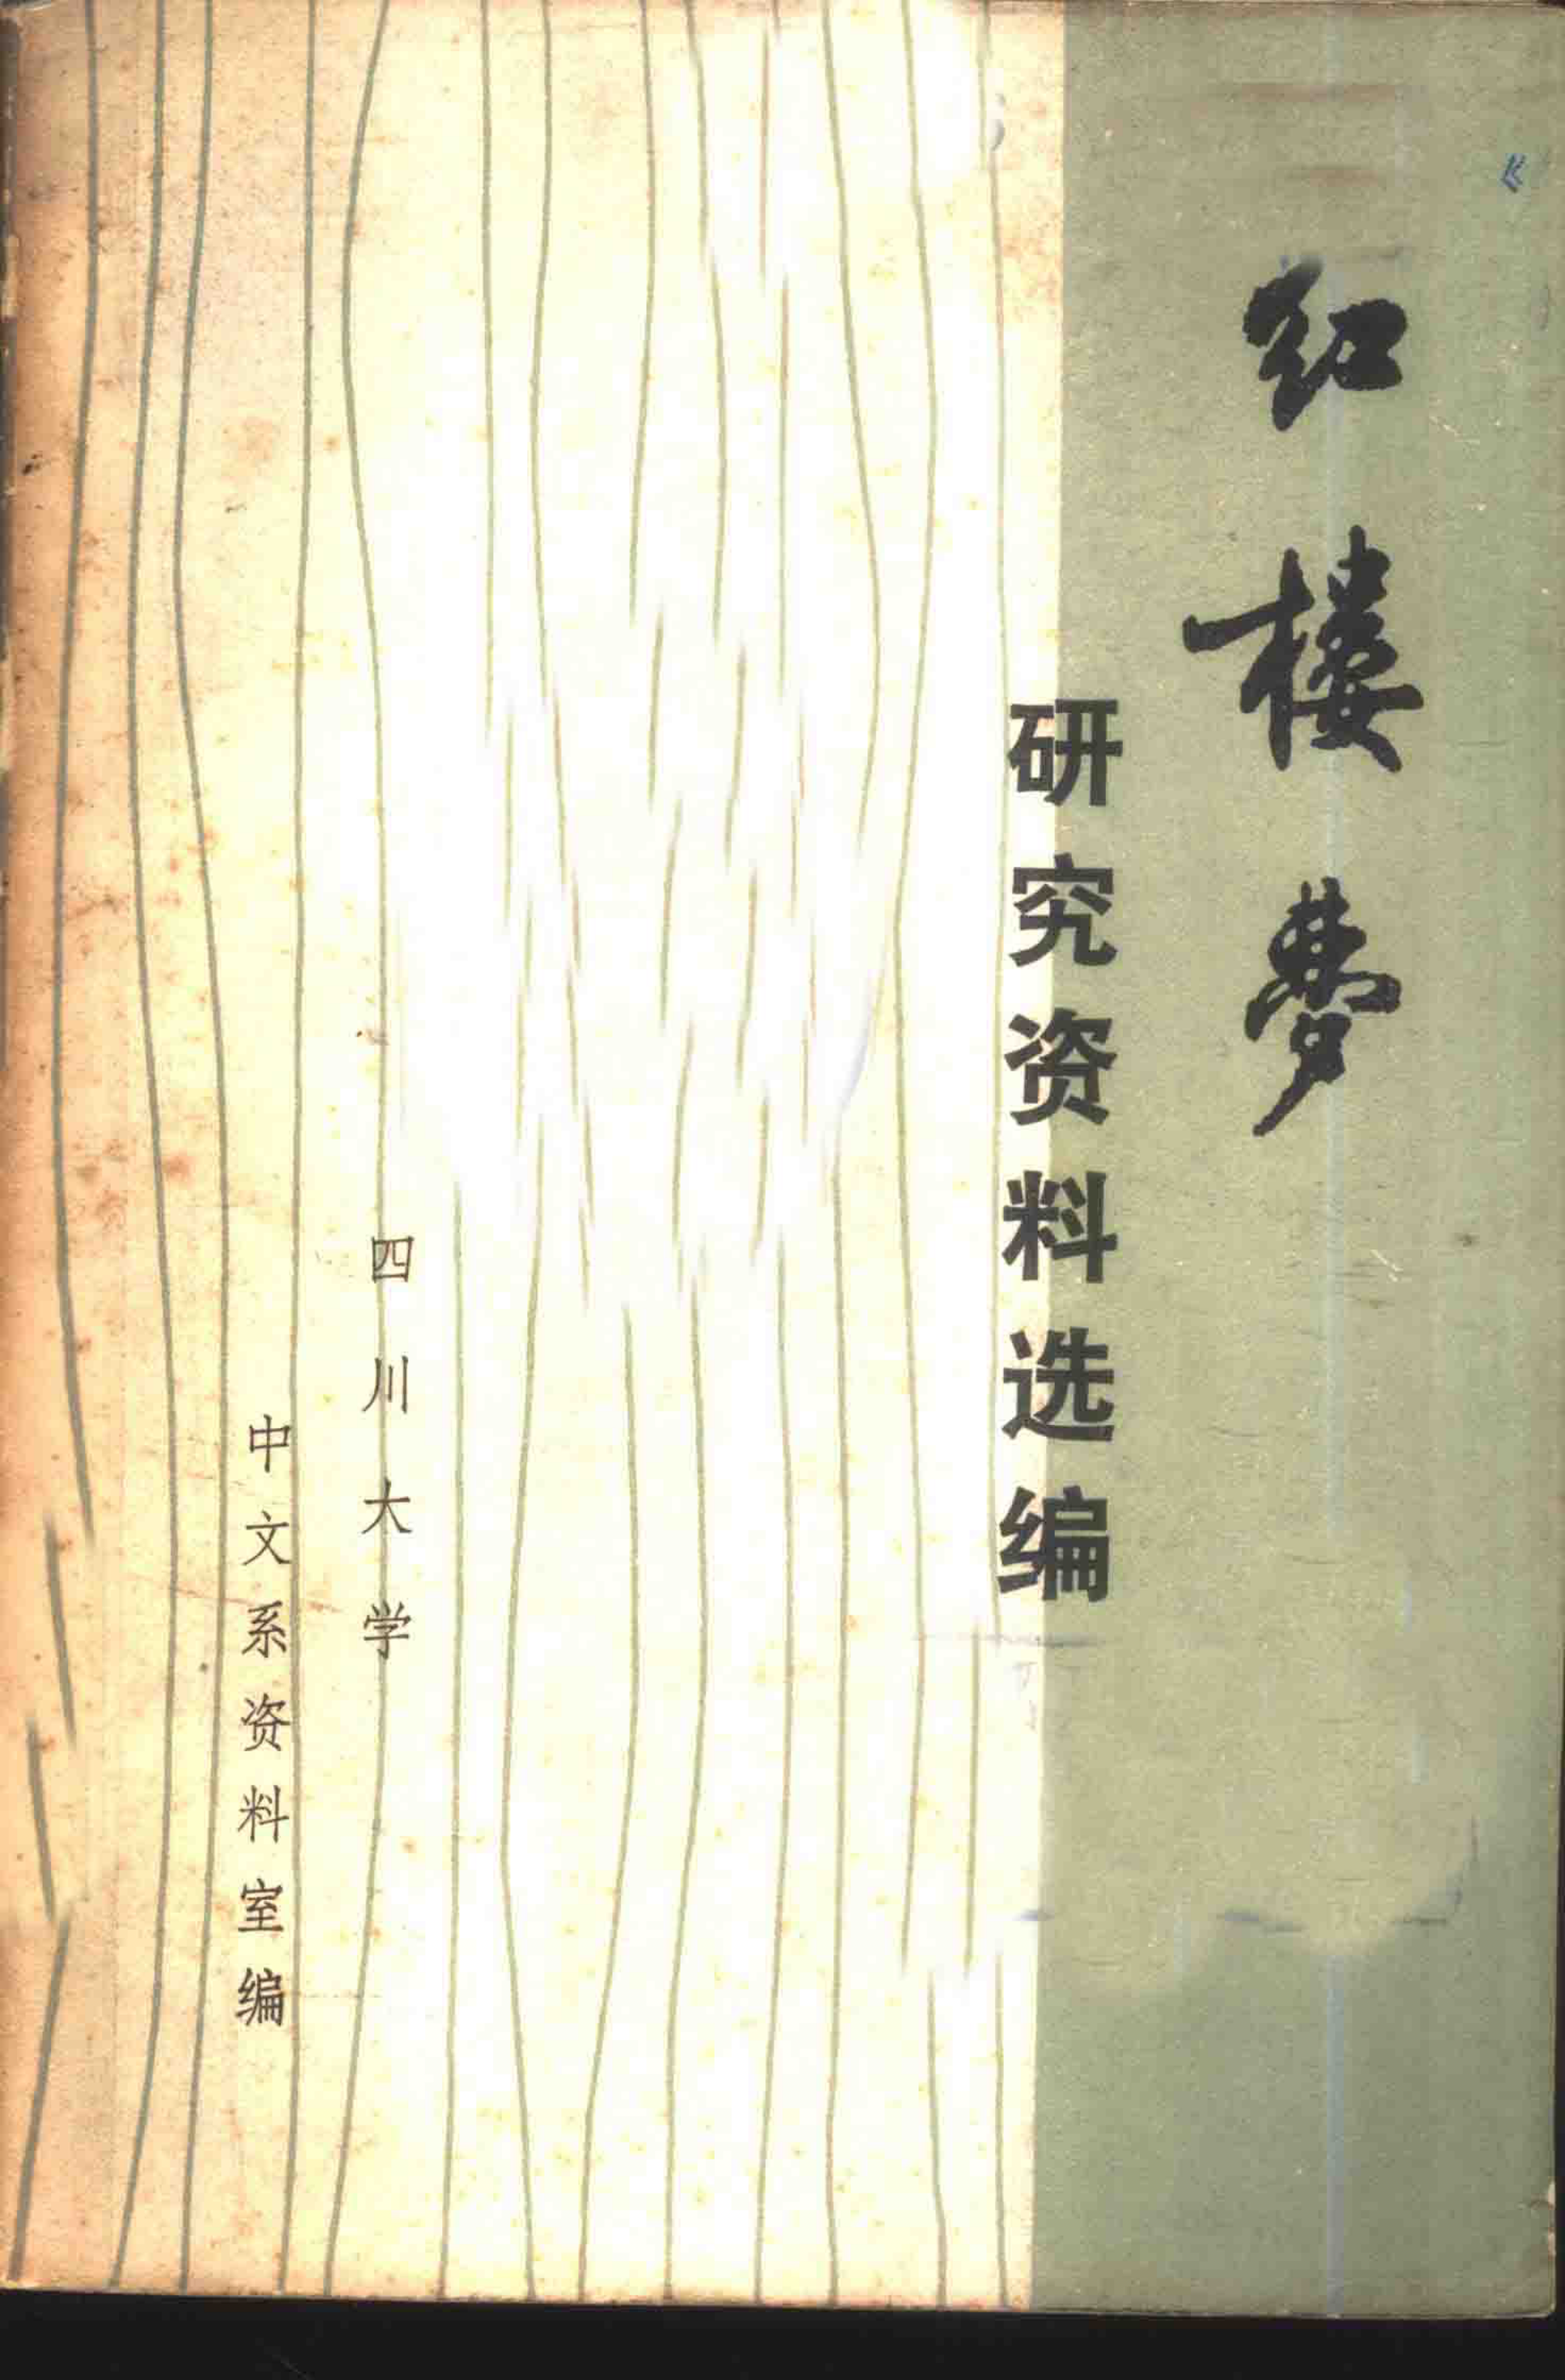 红楼梦
研究资料选编
四川大学
中文系资料室编